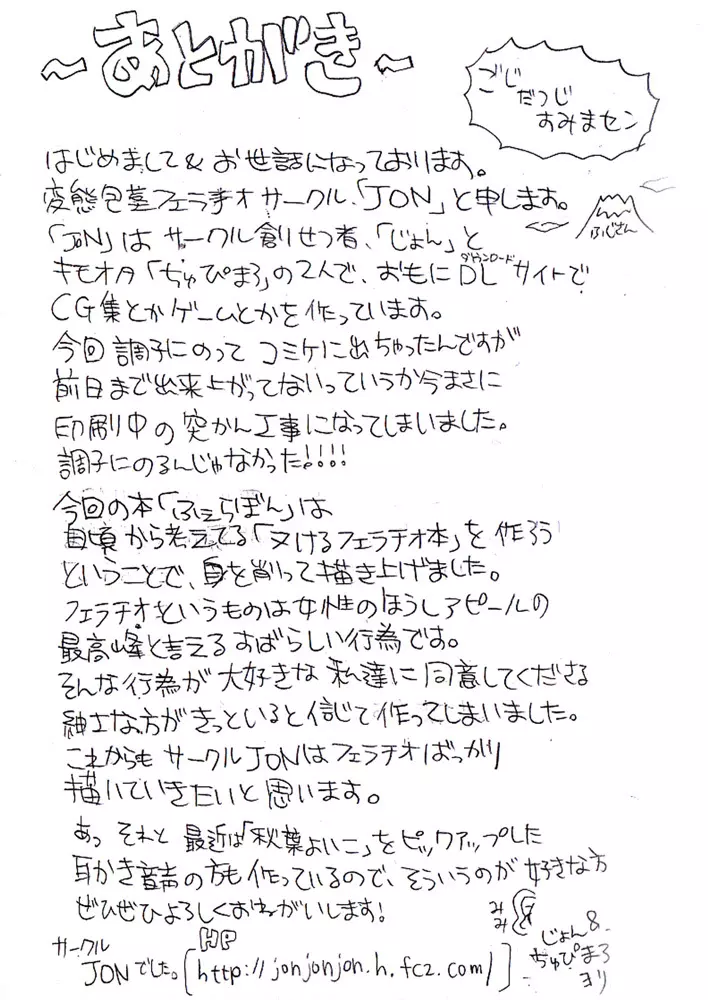 ～あとがき～
ごじ
だつじ
すみまセン
はじめまして&お世話になっております。
変態包茎フェラチオサークル、「JON」と申します。
ふじさん
「JON」はサークル創りせつ者、「じょん」と
キモオタ「ぢゅぴまろ」の2人で、おもにDLサイトで
ダウンロード
CG集とかゲームとかを作っています。
今回調子にのってコミケに出ちゃったんですが
前日まで出来上がってないっていうか今まさに
印刷中の突かん工事になってしまいました。
調子にのるんじゃなかった!!!!
今回の本「ふぇらぼん」は
日頃から考えてる「ヌけるフェラチオ本」を作ろう
ということで、身を削って描き上げました。
フェラチオというものは女性のほうしアピールの
最高峰と言えるすばらしい行為です。
そんな行為が大好きな私達に同意してくださる
紳士な方がきっといると信じて作ってしまいました。
これからもサークルJONはフェラチオばっかり
描いていきたいと思います。
あっ それと 最近は「秋葉よいこ」をピックアップした
耳かき音声の方も作っているので、そういうのが好きな方
ぜひぜひよろしくおねがいします!
みみ
サークル
JONでした。
HP
http://jonjonjon.h.fc2.com/
じょん&
ぢゅぴまろ
ヨリ